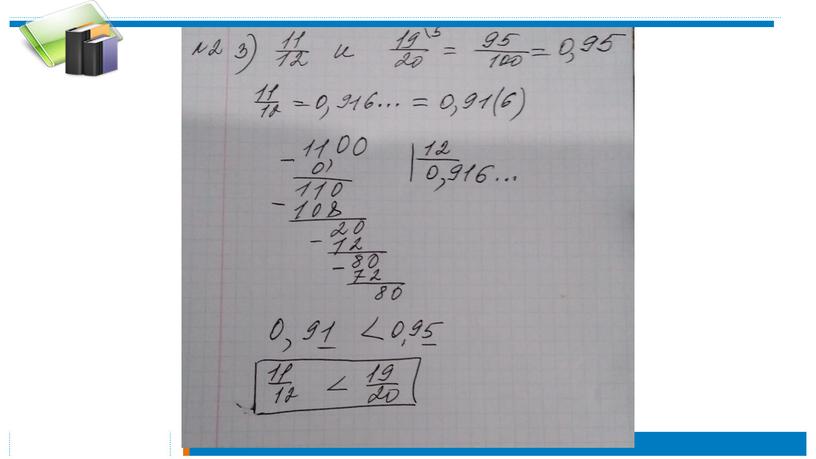 №2 3) 11/12 и 19/20 \5 = 95/100 = 0,95
11/12 = 0,916... = 0,91(6)
- 11,00 | 12
0, 0,916...
110
- 108
20
- 12
80
- 72
80
0,91 < 0,95
11/12 < 19/20